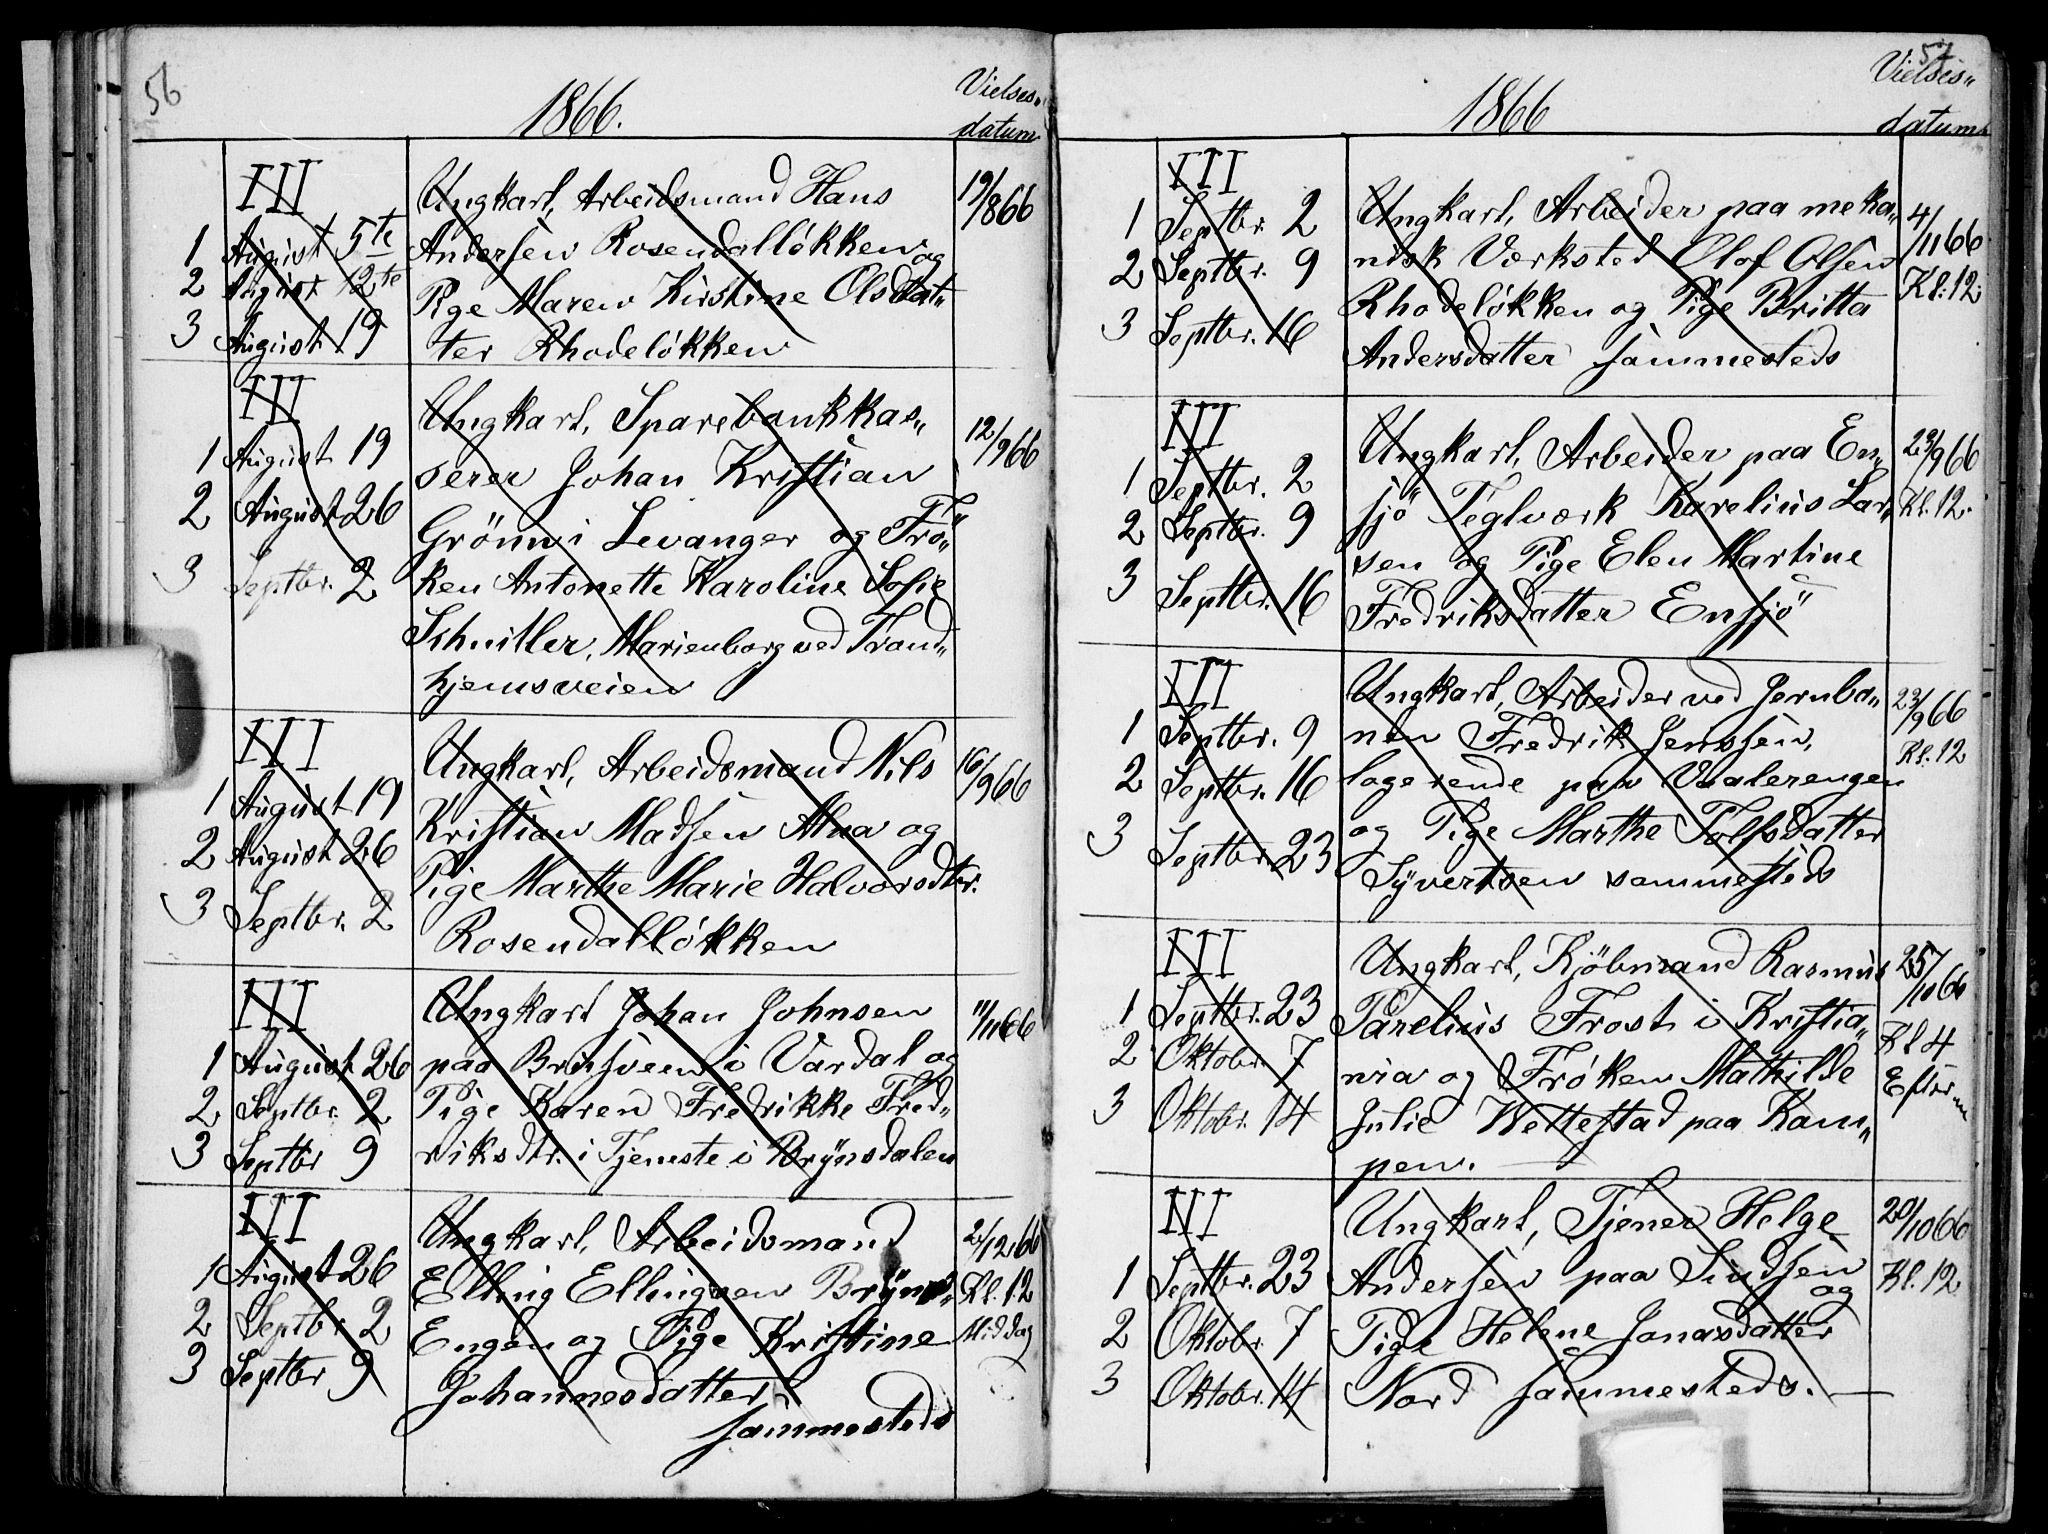 56
1866.
Vielses„
datum
III
1 August 5te
2 August 12te
3 August 19
Ungkarl, Arbeidsmand Hans
Andersen Rosendalløkken og
Pige Maren Kirstine Olsdat„
ter Rhodeløkken
19/866
III
1 August 19
2 August 26
3 Septbr. 2
Ungkarl, Sparebankkas„
serer Johan Kristian
Grönn i Levanger og Frö„
ken Antonette Karoline Sofie
Schnitler, Marienborg ved Trond„
hjemsveien
12/966
III
1 August 19
2 August 26
3 Septbr. 2
Ungkarl, Arbeidsmand Nils
Kristian Madsen Alna og
Pige Marthe Marie Halvorsdtr.
Rosendalløkken
16/966
III
1 August 26
2 Septbr. 2
3 Septbr 9
Ungkarl Johan Johnsen
paa i Vardal og
Pige Karen Fredrikke Fred„
riksdtr. i Tjeneste i Brÿnsdalen
11/1166
III
1 August 26
2 Septbr 2
3 Septbr 9
Ungkarl, Arbeidsmand
Elling Ellingsen Brÿns„
Engen og Pige Kristine
Johannesdatter
sammesteds
2/1266
Kl. 12
Middag
57
1866
Vielses„
datum
III
1 Septbr. 2
2 Septbr. 9
3 Septbr. 16
Ungkarl, Arbeider paa meka„
nisk Værksted Olof Olsen
Rhodeløkken og Pige Britta
Andersdatter sammesteds
4/1166
Kl: 12.
III
1 Septbr. 2
2 Septbr. 9
3 Septbr. 16
Ungkarl, Arbeider paa En„
sjö Teglværk Karelius Lar„
sen og Pige Elen Martine
Fredriksdatter Ensjö
23/966
Kl. 12.
III
1 Septbr. 9
2 Septbr. 16
3 Septbr. 23
Ungkarl, Arbeider ved Jernba„
nen Fredrik Jenssen,
logerende paa Vaalerengen
og Pige Marthe Tolfsdatter
Sÿvertsen sammesteds
23/966
Kl. 12
III
1 Septbr. 23
2 Oktobr. 7
3 Oktobr. 14
Ungkarl, Kjöbmand Rasmus
Parelius Frost i Kristia„
nia og Frøken Mathilde
Julie Wettestad paa Kam„
pen.
25/1066
Kl 4
Efterm
III
1 Septbr. 23
2 Oktobr. 7
3 Oktobr. 14
Ungkarl, Tjener Helge
Andersen paa Sindsen
og
Pige Helene Jonasdatter
Nord sammesteds.
20/1066
Kl. 12